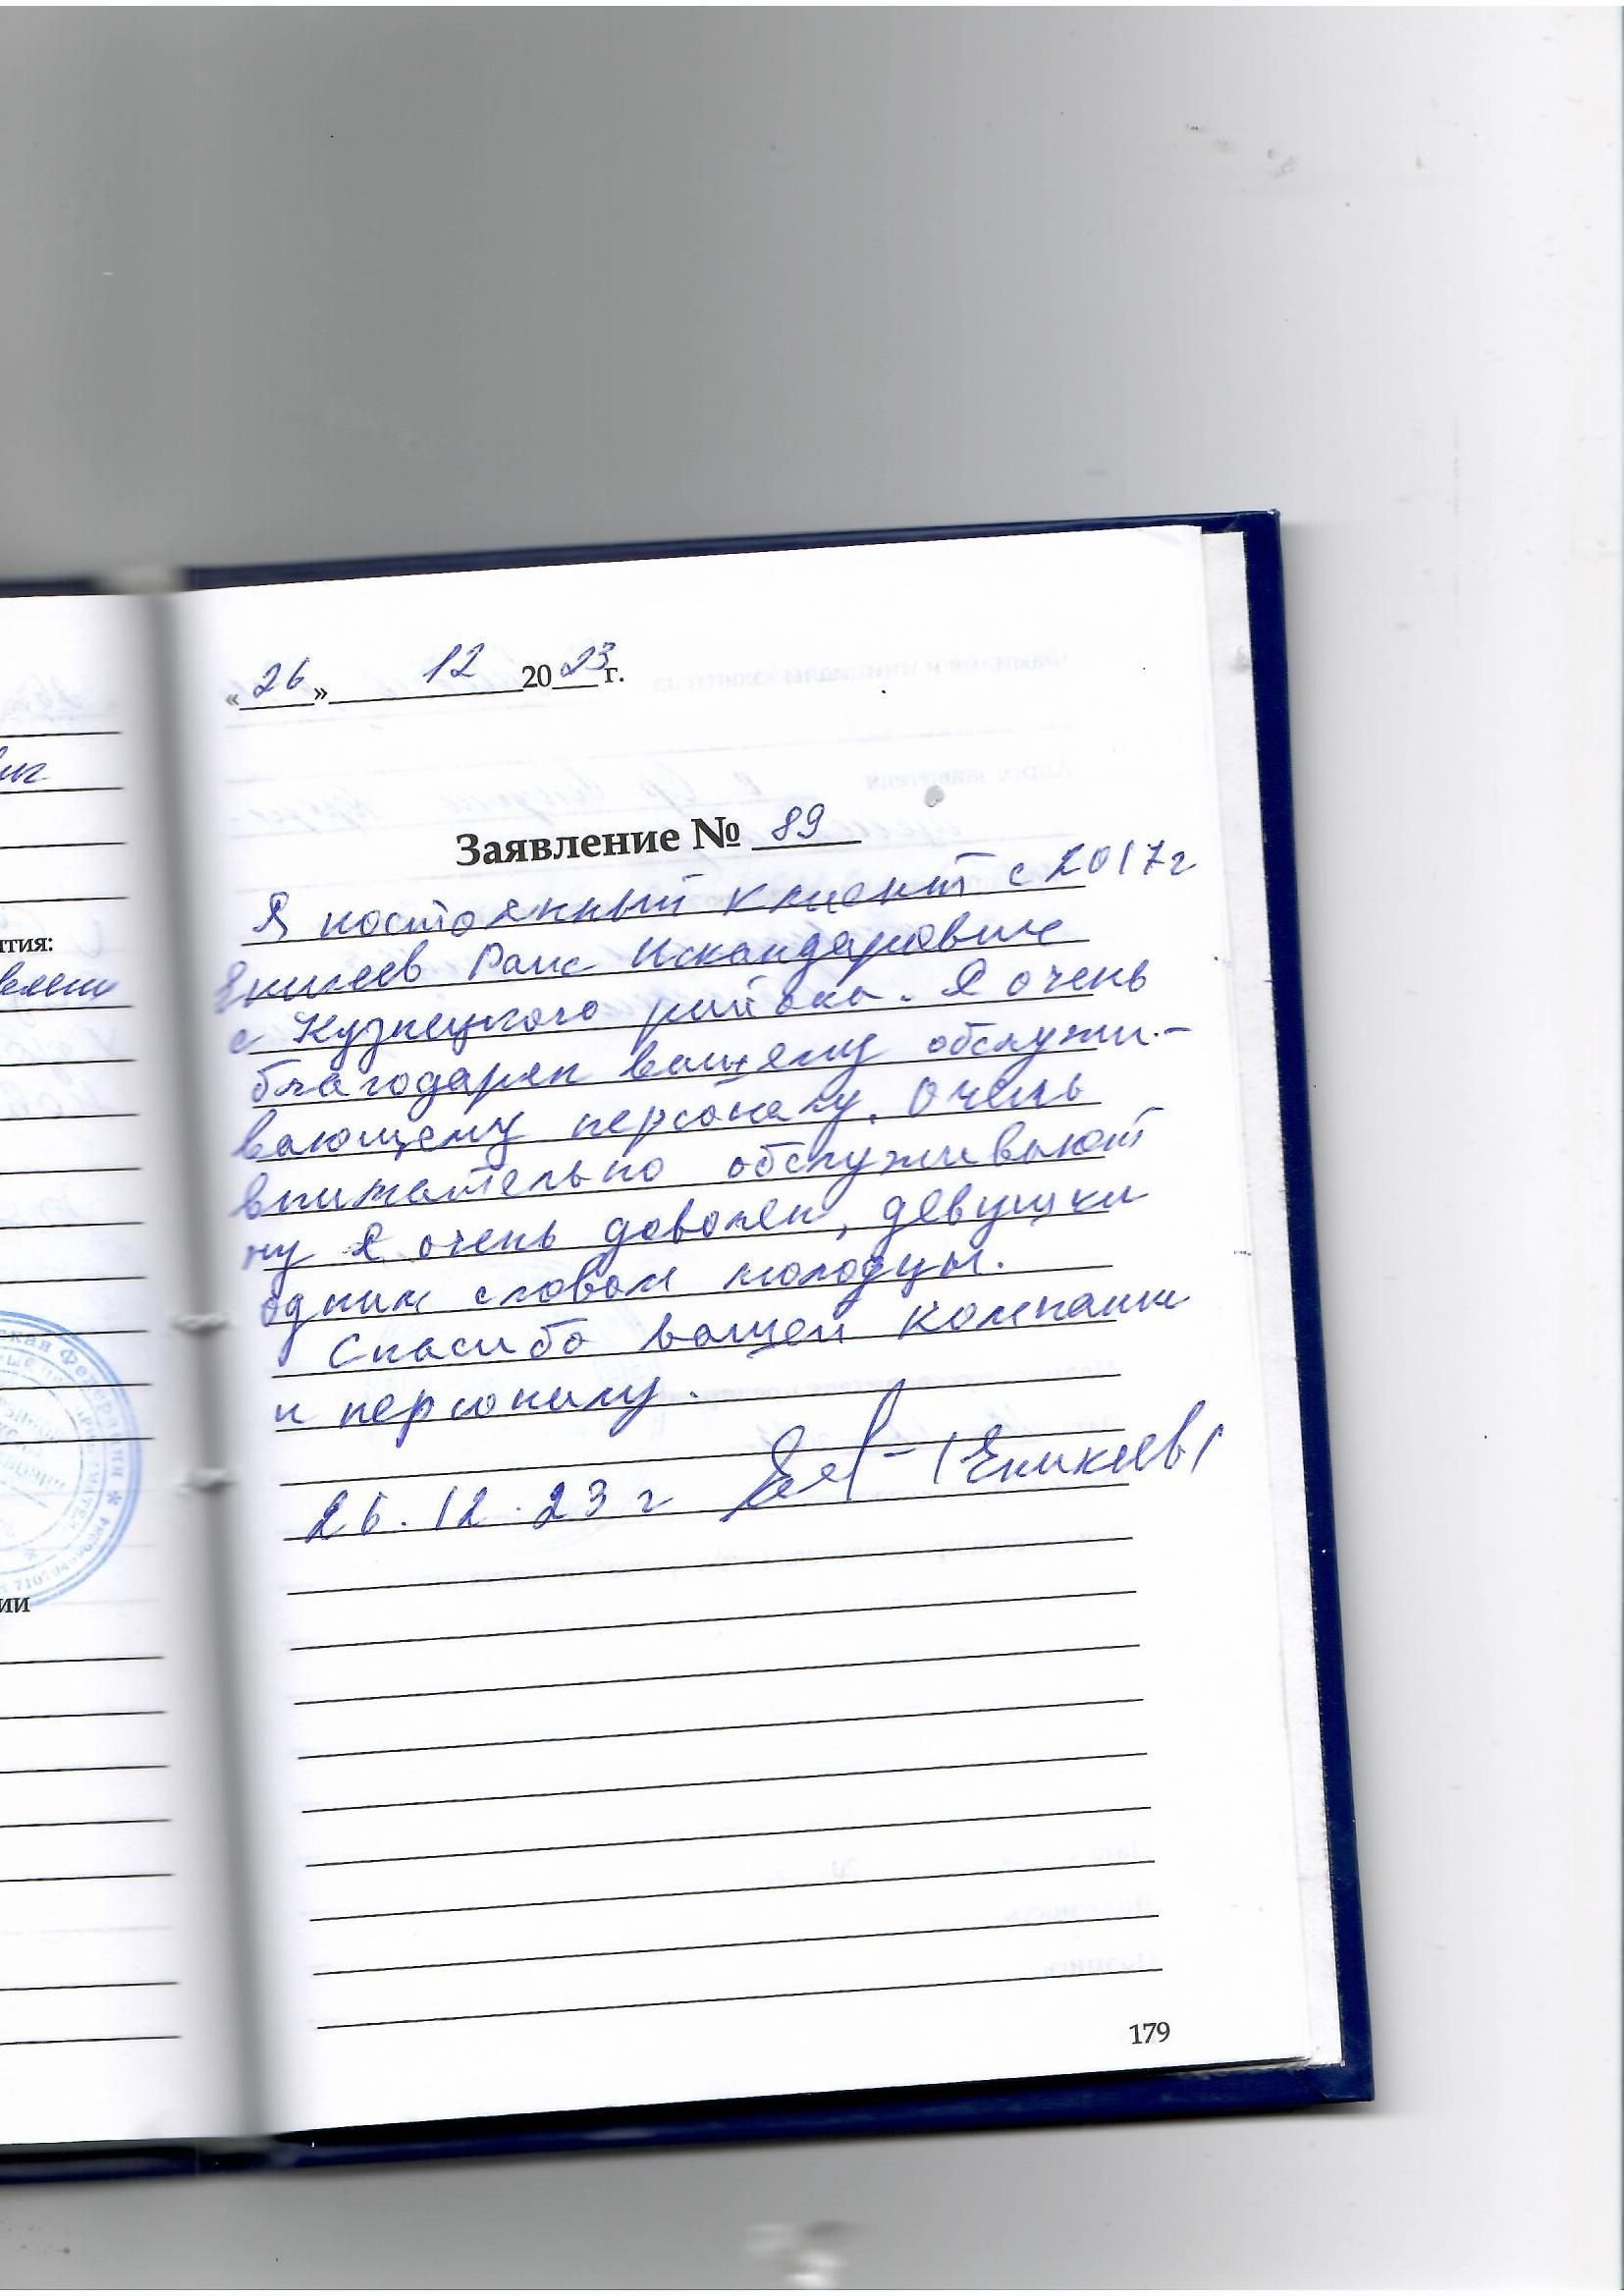 «26» 12 2023 г.
Заявление № 89
Я постоянный клиент с 2017г
Еникеев Раис Искандарович
с Кузнецкого района. Я очень
благодарен вашему обслужи-
вающему персоналу. Очень
внимательно обслуживают
ну я очень доволен, девушки
одним словом молодцы.
Спасибо вашей компании
и персоналу.
26.12.23 г (Еникеев)
179
тия:
ии